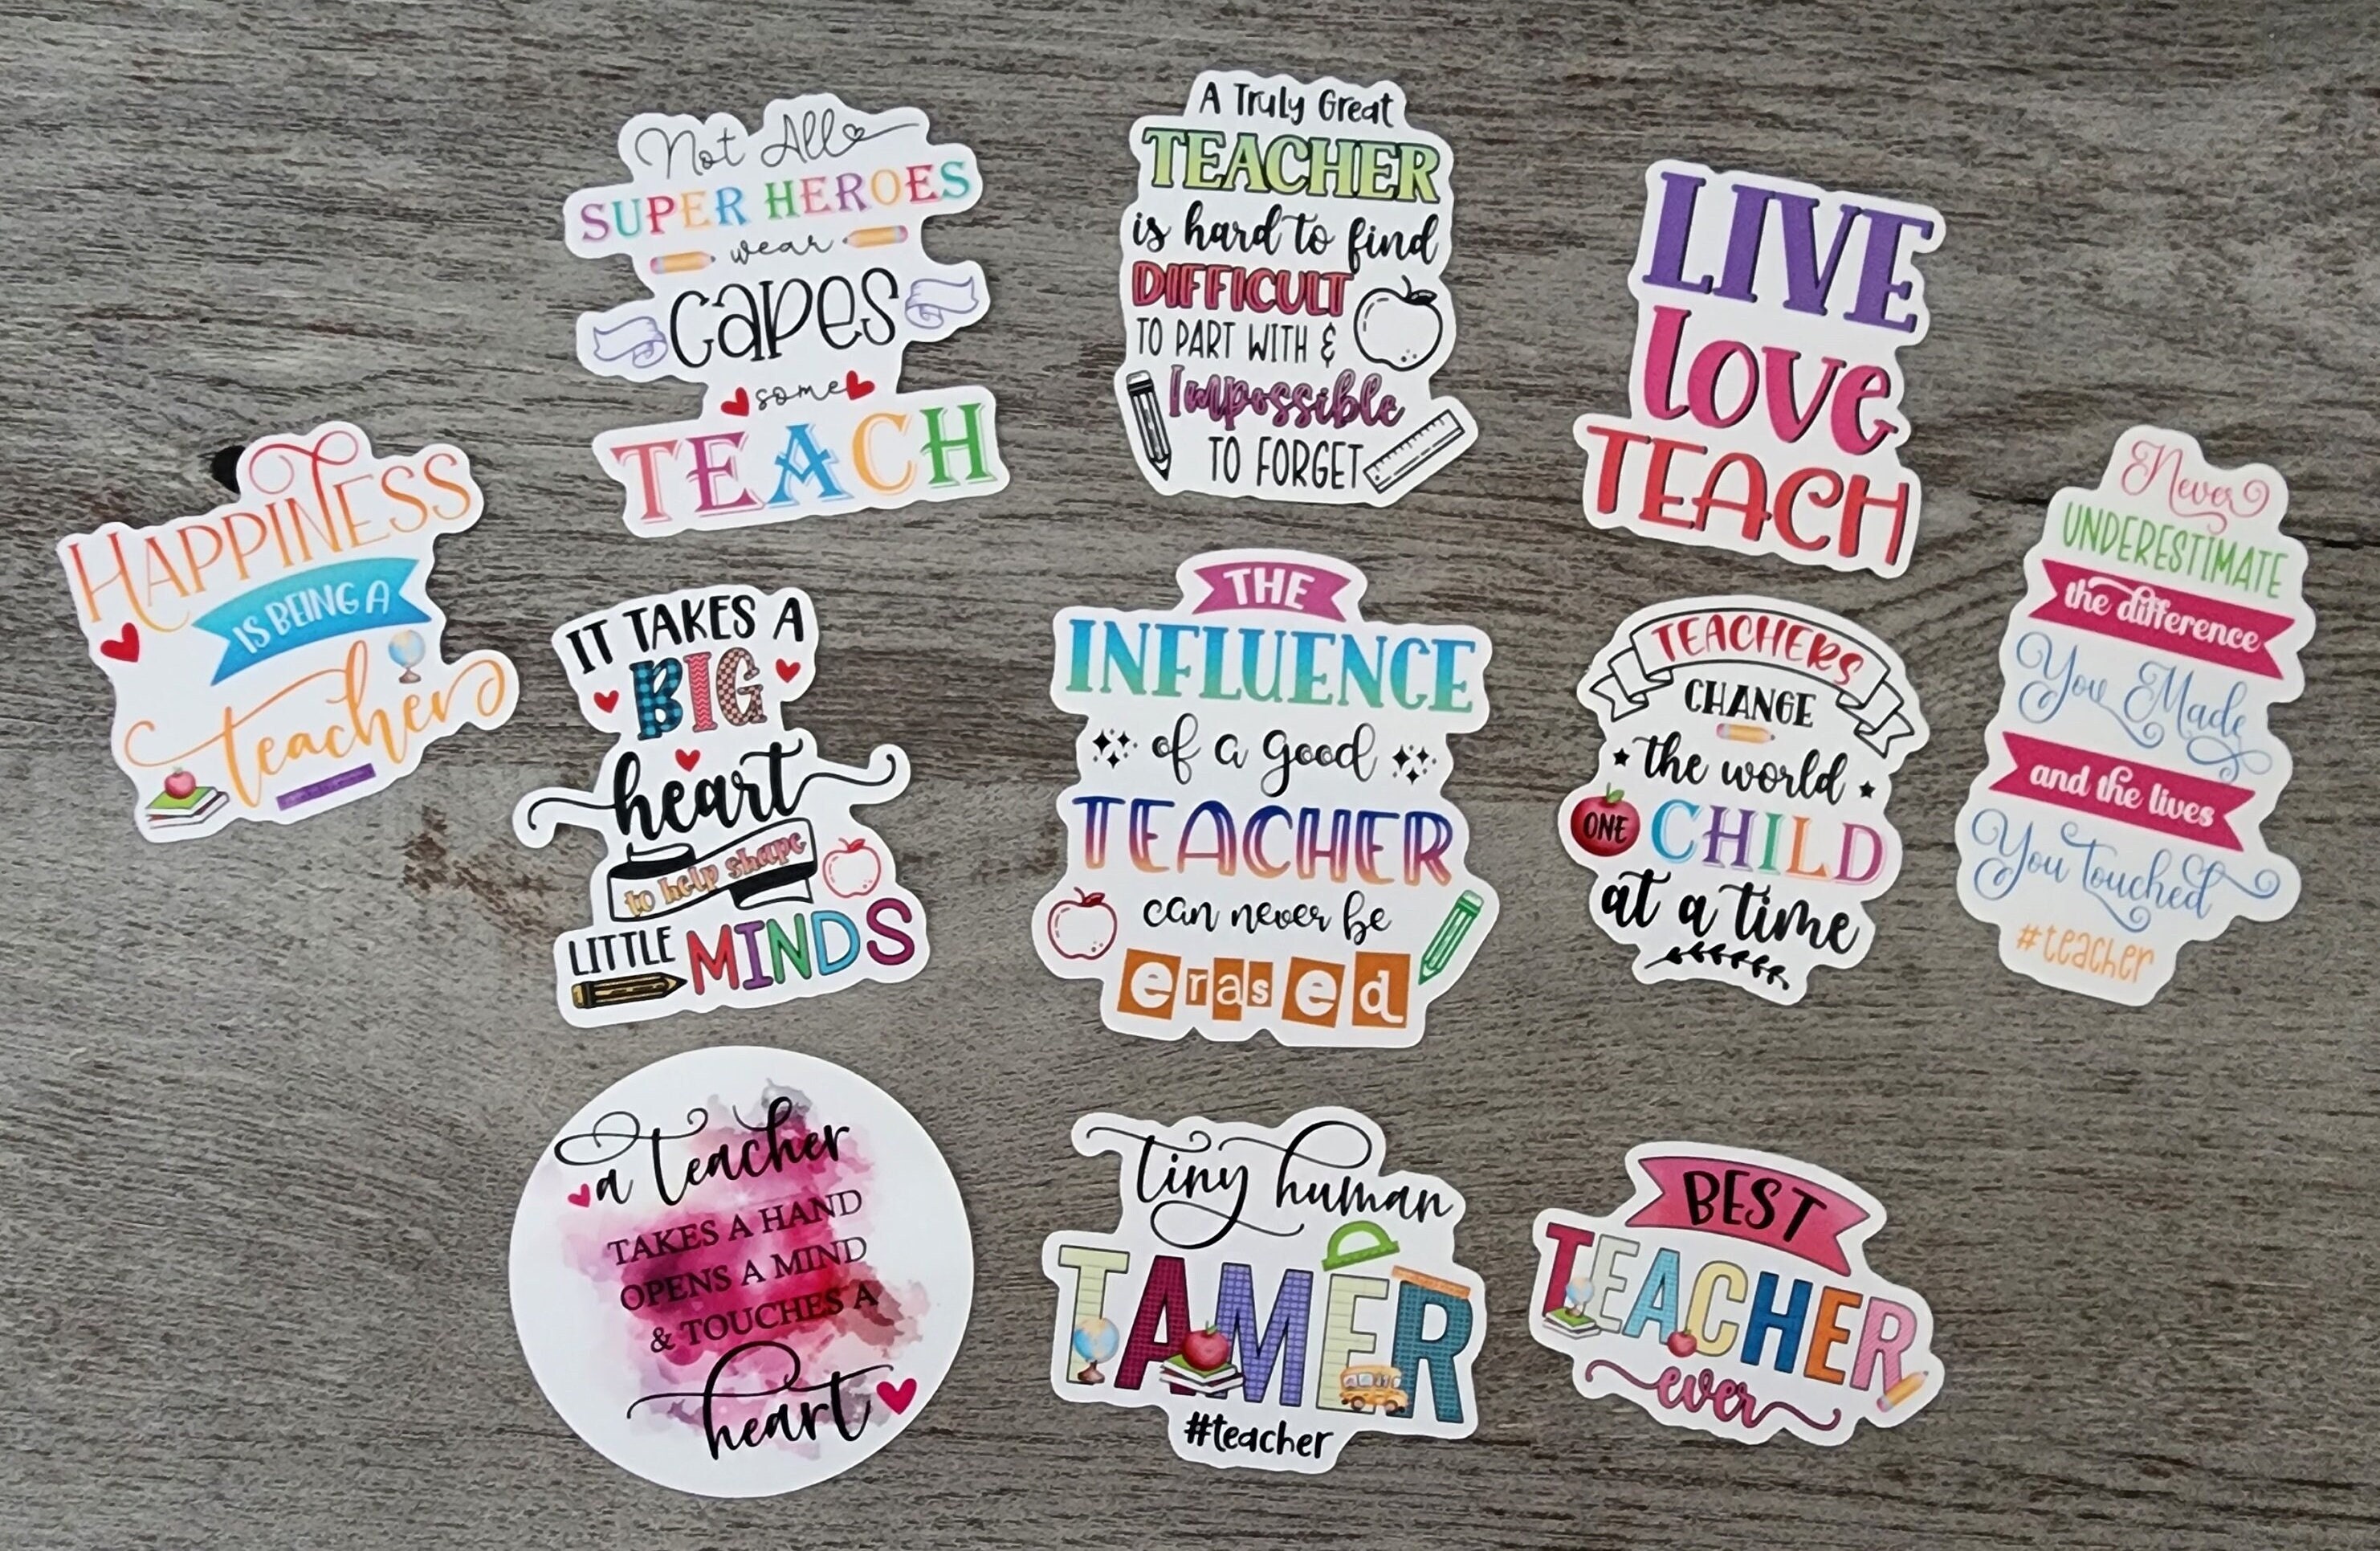 Not All
SUPER HEROES
wear
CAPES
some
TEACH
A Truly Great
TEACHER
is hard to find
DIFFICULT
TO PART WITH &
Impossible
TO FORGET
LIVE
love
TEACH
HAPPINESS
IS BEING A
teacher
IT TAKES A
BIG
heart
to help shape
LITTLE MINDS
THE
INFLUENCE
of a good
TEACHER
can never be
erased
TEACHERS
CHANGE
the world
ONE CHILD
at a time
Never
UNDERESTIMATE
the difference
You Made
and the lives
You touched
#teacher
a teacher
TAKES A HAND
OPENS A MIND
& TOUCHES A
heart
tiny human
TAMER
#teacher
BEST
TEACHER
ever